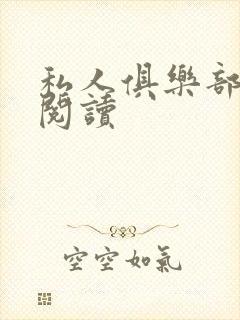 私人俱樂部
閱讀
空空如氣